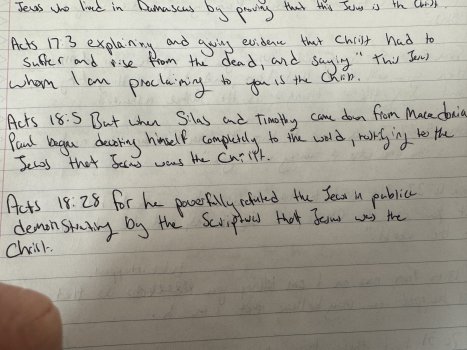 Jews who lived in Damascus by proving that this Jesus is the Christ
Acts 17:3 explaining and giving evidence that Christ had to
suffer and rise from the dead, and saying "This Jesus
whom I am proclaiming to you is the Christ.
Acts 18:5 But when Silas and Timothy came down from Macedonia
Paul began devoting himself completely to the world, testifying to the
Jews that Jesus was the Christ.
Acts 18:28 for he powerfully refuted the Jews in publice
demonstrating by the Scriptures that Jesus was the
Christ.